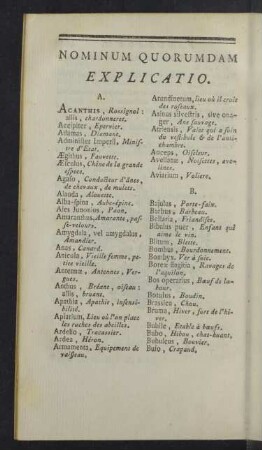 NOMINUM QUORUMDAM
EXPLICATIO.
A.
ACANTHIS, Rossignol :
aliis, chardonneret.
Accipiter, Epervier.
Adamas, Diamant.
Administer Imperii, Minis-
tre d'Etat.
Ægithus, Fauvette.
Æsculus, Chêne de la grande
espece.
Agaso, Conducteur d'ânes,
de chevaux, de mulets.
Alauda, Alouette.
Alba-spina, Aubepine.
Ales Junonius, Paon.
Amaranthus, Amarante, pas-
se-velours.
Amygdala, vel amygdalus,
Amandier.
Anas, Canard.
Anicula, Vieille femme, pe-
tite vieille.
Antennæ, Antennes, Ver-
gues.
Anthus, Bréant, oiseau :
aliis, bruant.
Apathia, Apathie, insensi-
bilité.
Apiarium, Lieu où l'on place
les ruches des abeilles.
Ardelio, Tracassier.
Ardea, Héron.
Armamenta, Equipement de
vaisseau.
Arundinetum, lieu où il croît
des roseaux.
Asinus silvestris, sive ona-
ger, Ane sauvage.
Atriensis, Valet qui a soin
du vestibule & de l'anti-
chambre.
Auceps, Oiseleur.
Avellanæ, Noisettes, ave-
lines.
Aviarium, Voliere.
B.
Bajulus, Porte-faix.
Barbus, Barbeau.
Bellaria, Friandises.
Bibulus puer, Enfant qui
aime le vin.
Blitum, Blette.
Bombus, Bourdonnement.
Bombyx, Ver à soie.
Boreæ-flagitia, Ravages de
l'aquilon.
Bos operarius, Bœuf de la-
bour.
Botulus, Boudin.
Brassica, Chou.
Bruma, Hiver, fort de l'hi-
ver.
Bubile, Etable à bœufs.
Bubo, Hibou, chat-huant.
Bubulcus, Bouvier.
Bufo, Crapaud.